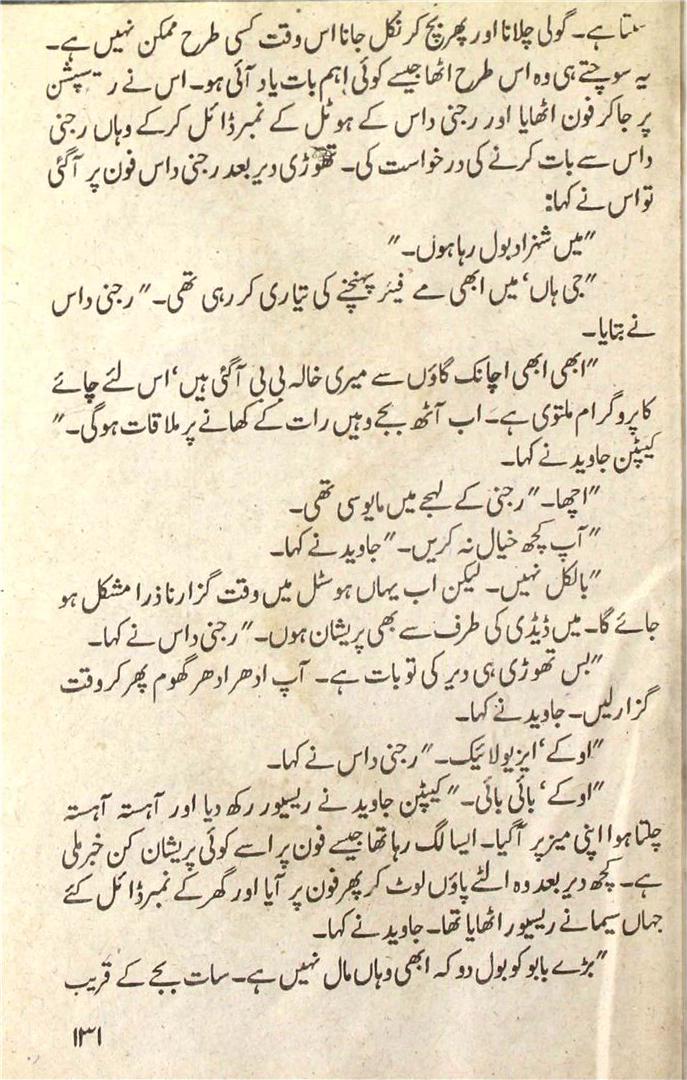 سکتا ہے۔ گولی چلانا اور پھر بچ کر نکل جانا اس وقت کسی طرح ممکن نہیں ہے۔
یہ سوچتے ہی وہ اس طرح اٹھا جیسے کوئی اہم بات یاد آئی ہو۔ اس نے ریسپشن
پر جا کر فون اٹھایا اور رجنی داس کے ہوٹل کے نمبر ڈائل کر کے وہاں رجنی
داس سے بات کرنے کی درخواست کی۔ تھوڑی دیر بعد رجنی داس فون پر آگئی
تو اس نے کہا:
"میں شہزاد بول رہا ہوں۔"
"جی ہاں، میں ابھی مے فیئر پہنچنے کی تیاری کر رہی تھی۔" رجنی داس
نے بتایا۔
"ابھی ابھی اچانک گاؤں سے میری خالہ بی بی آگئی ہیں، اس لئے چائے
کا پروگرام ملتوی ہے۔ اب آٹھ بجے وہیں رات کے کھانے پر ملاقات ہوگی۔"
کیپٹن جاوید نے کہا۔
"اچھا۔" رجنی کے لہجے میں مایوسی تھی۔
"آپ کچھ خیال نہ کریں۔" جاوید نے کہا۔
"بالکل نہیں۔ لیکن اب یہاں ہوسٹل میں وقت گزارنا ذرا مشکل ہو
جائے گا۔ میں ڈیڈی کی طرف سے بھی پریشان ہوں۔" رجنی داس نے کہا۔
"بس تھوڑی ہی دیر کی تو بات ہے۔ آپ ادھر ادھر گھوم پھر کر وقت
گزار لیں۔ جاوید نے کہا۔
"اوکے، ایزیو لائیک۔" رجنی داس نے کہا۔
"اوکے، بائی بائی۔" کیپٹن جاوید نے ریسیور رکھ دیا اور آہستہ آہستہ
چلتا ہوا اپنی میز پر آگیا۔ ایسا لگ رہا تھا جیسے فون پر اسے کوئی پریشان کن خبر ملی
ہے۔ کچھ دیر بعد وہ الٹے پاؤں لوٹ کر پھر فون پر آیا اور گھر کے نمبر ڈائل کئے
جہاں سیما نے ریسیور اٹھایا تھا۔ جاوید نے کہا۔
"بڑے بابو کو بول دو کہ ابھی وہاں مال نہیں ہے۔ سات بجے کے قریب
۱۳۱